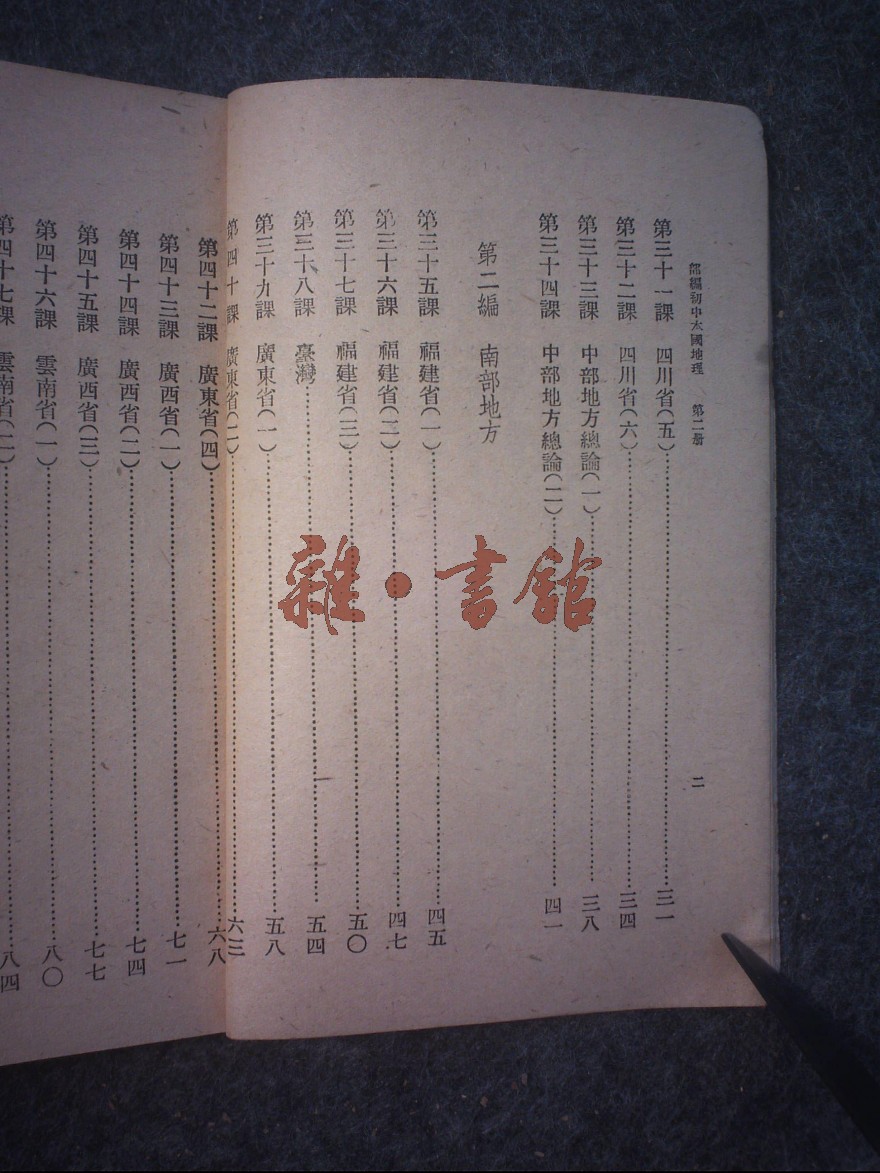 部編初中本國地理　第二册
二
第三十一課　四川省(五)……三一
第三十二課　四川省(六)……三四
第三十三課　中部地方總論(一)……三八
第三十四課　中部地方總論(二)……四一
第二編　南部地方
第三十五課　福建省(一)……四五
第三十六課　福建省(二)……四七
第三十七課　福建省(三)……五〇
第三十八課　臺灣……五四
第三十九課　廣東省(一)……五八
第四十課　廣東省(二)……六三
第四十二課　廣東省(四)……六八
第四十三課　廣西省(一)……七一
第四十四課　廣西省(二)……七四
第四十五課　廣西省(三)……七七
第四十六課　雲南省(一)……八〇
第四十七課　雲南省(二)……八四
雜·書館